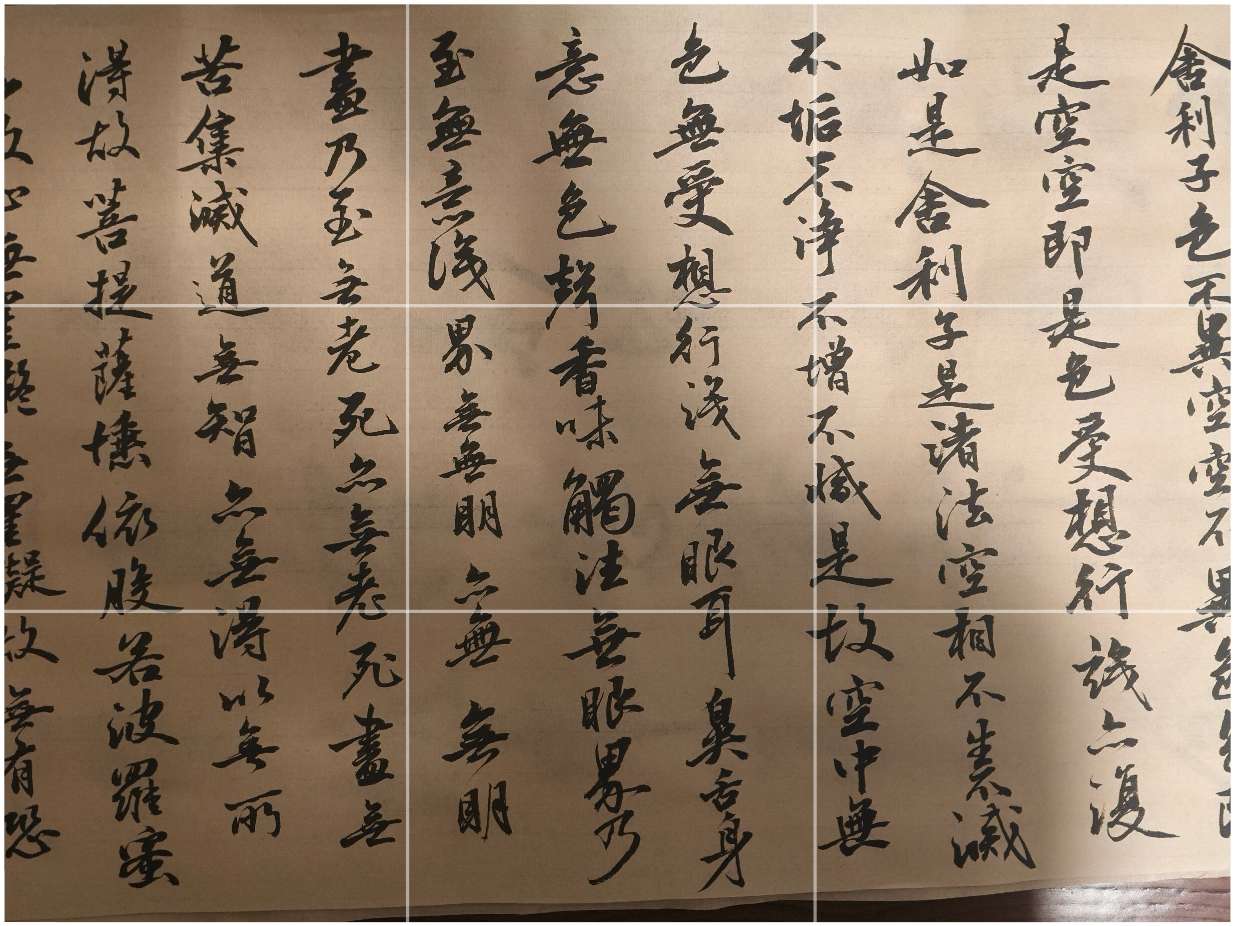 舍利子色不異空空不異色色即
是空空即是色受想行識亦復
如是舍利子是諸法空相不生不滅
不垢不淨不增不減是故空中無
色無受想行識無眼耳鼻舌身
意無色聲香味觸法無眼界乃
至無意識界無無明亦無無明
盡乃至無老死亦無老死盡無
苦集滅道無智亦無得以無所
得故菩提薩埵依般若波羅蜜
故心無罣礙無罣礙故無有恐